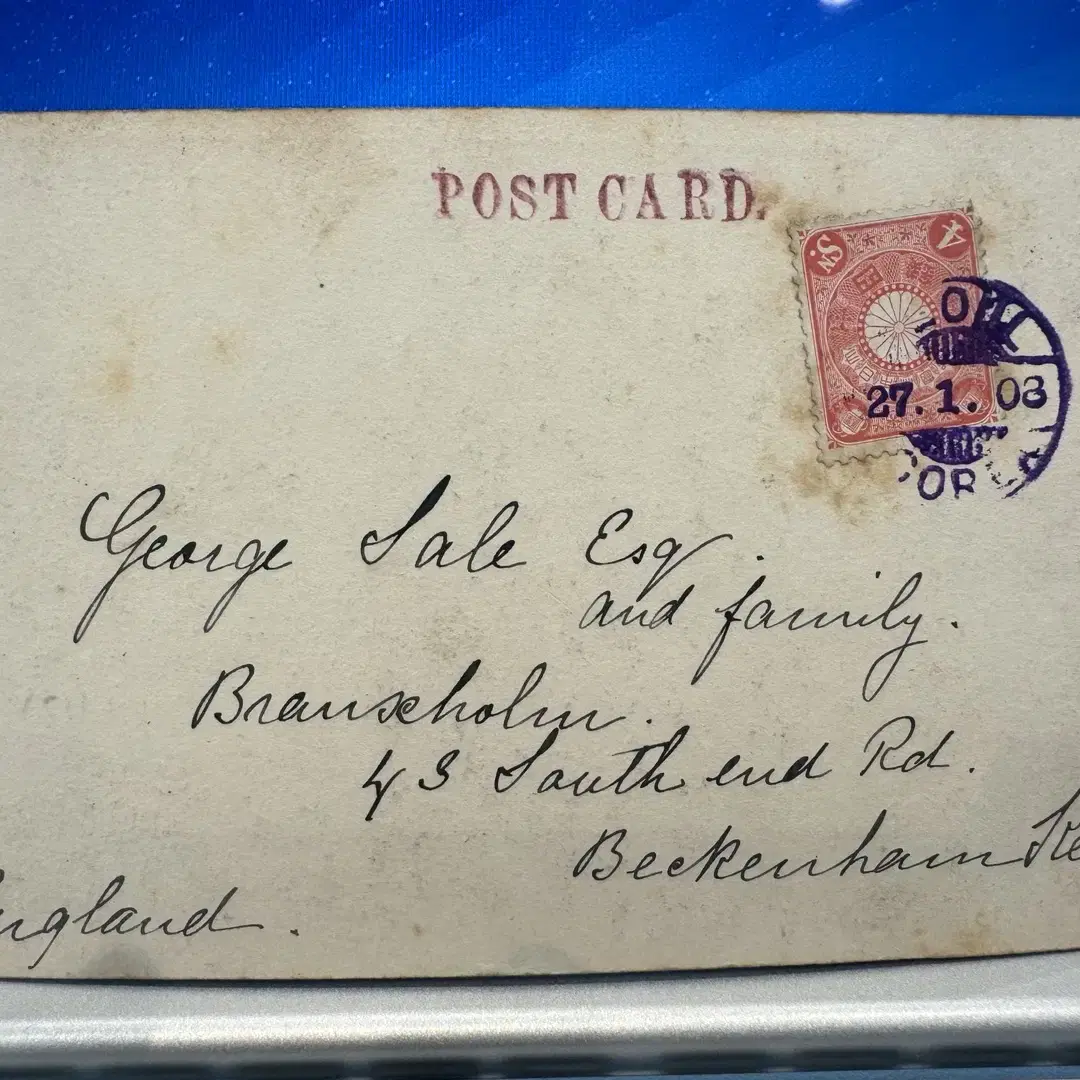 POST CARD.
4 Sn.
27.1.08
George Sale Esq.
and family.
Branxholm.
43 South end Rd.
Beckenham
England.